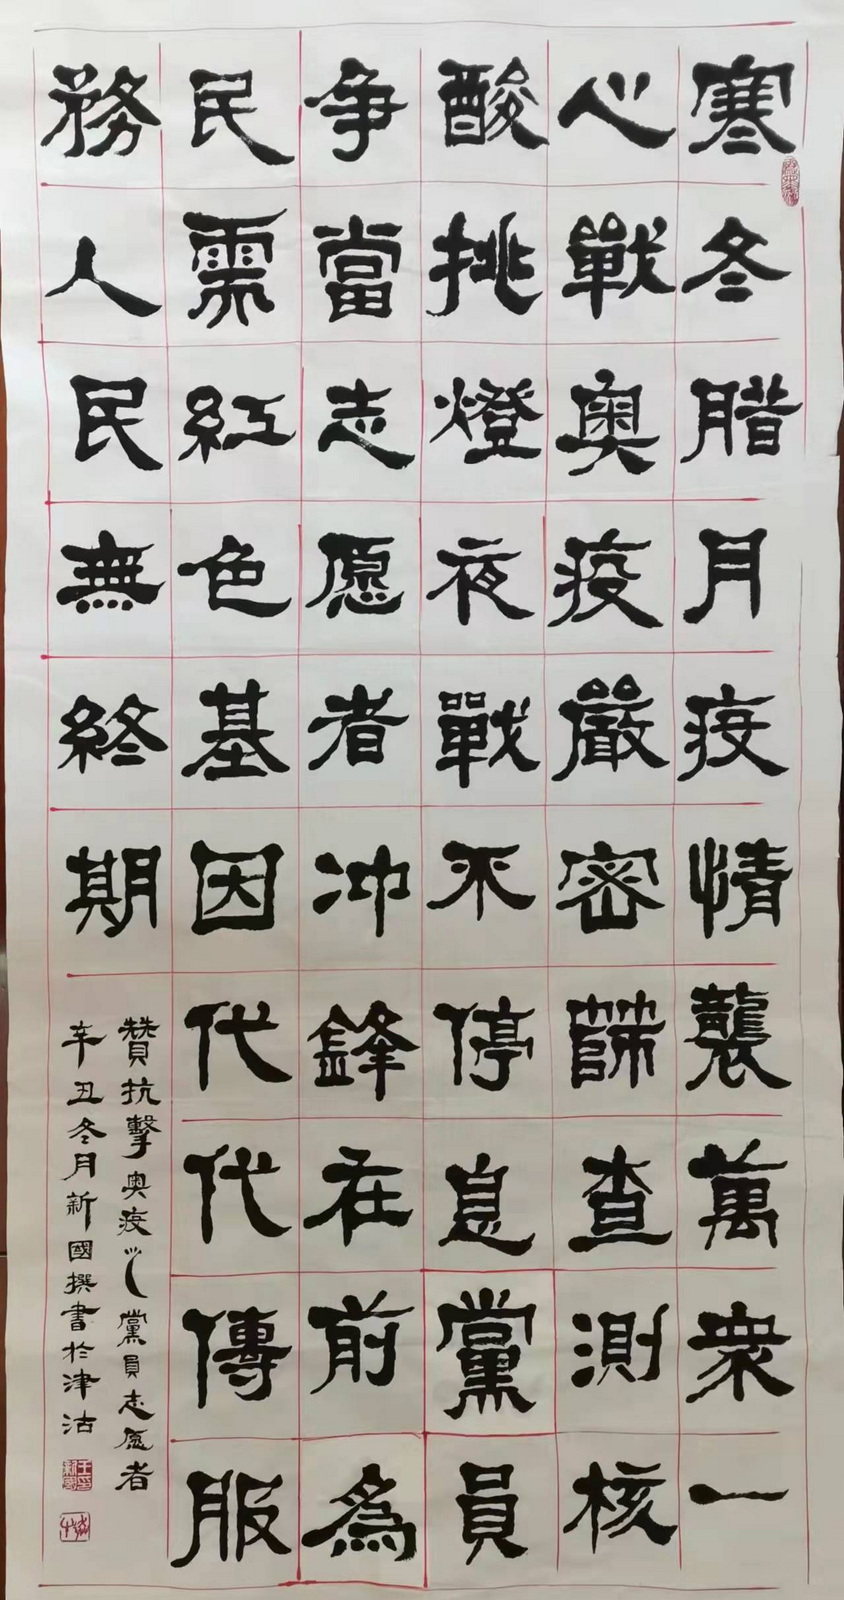 寒冬腊月疫情襲萬衆一
心戰奥疫嚴密篩查測核
酸挑燈夜戰不停息黨員
争當志愿者冲鋒在前為
民需紅色基因代代傳服
務人民無終期
贊抗擊奥疫之黨員志愿者
辛丑冬月新國撰書於津沽